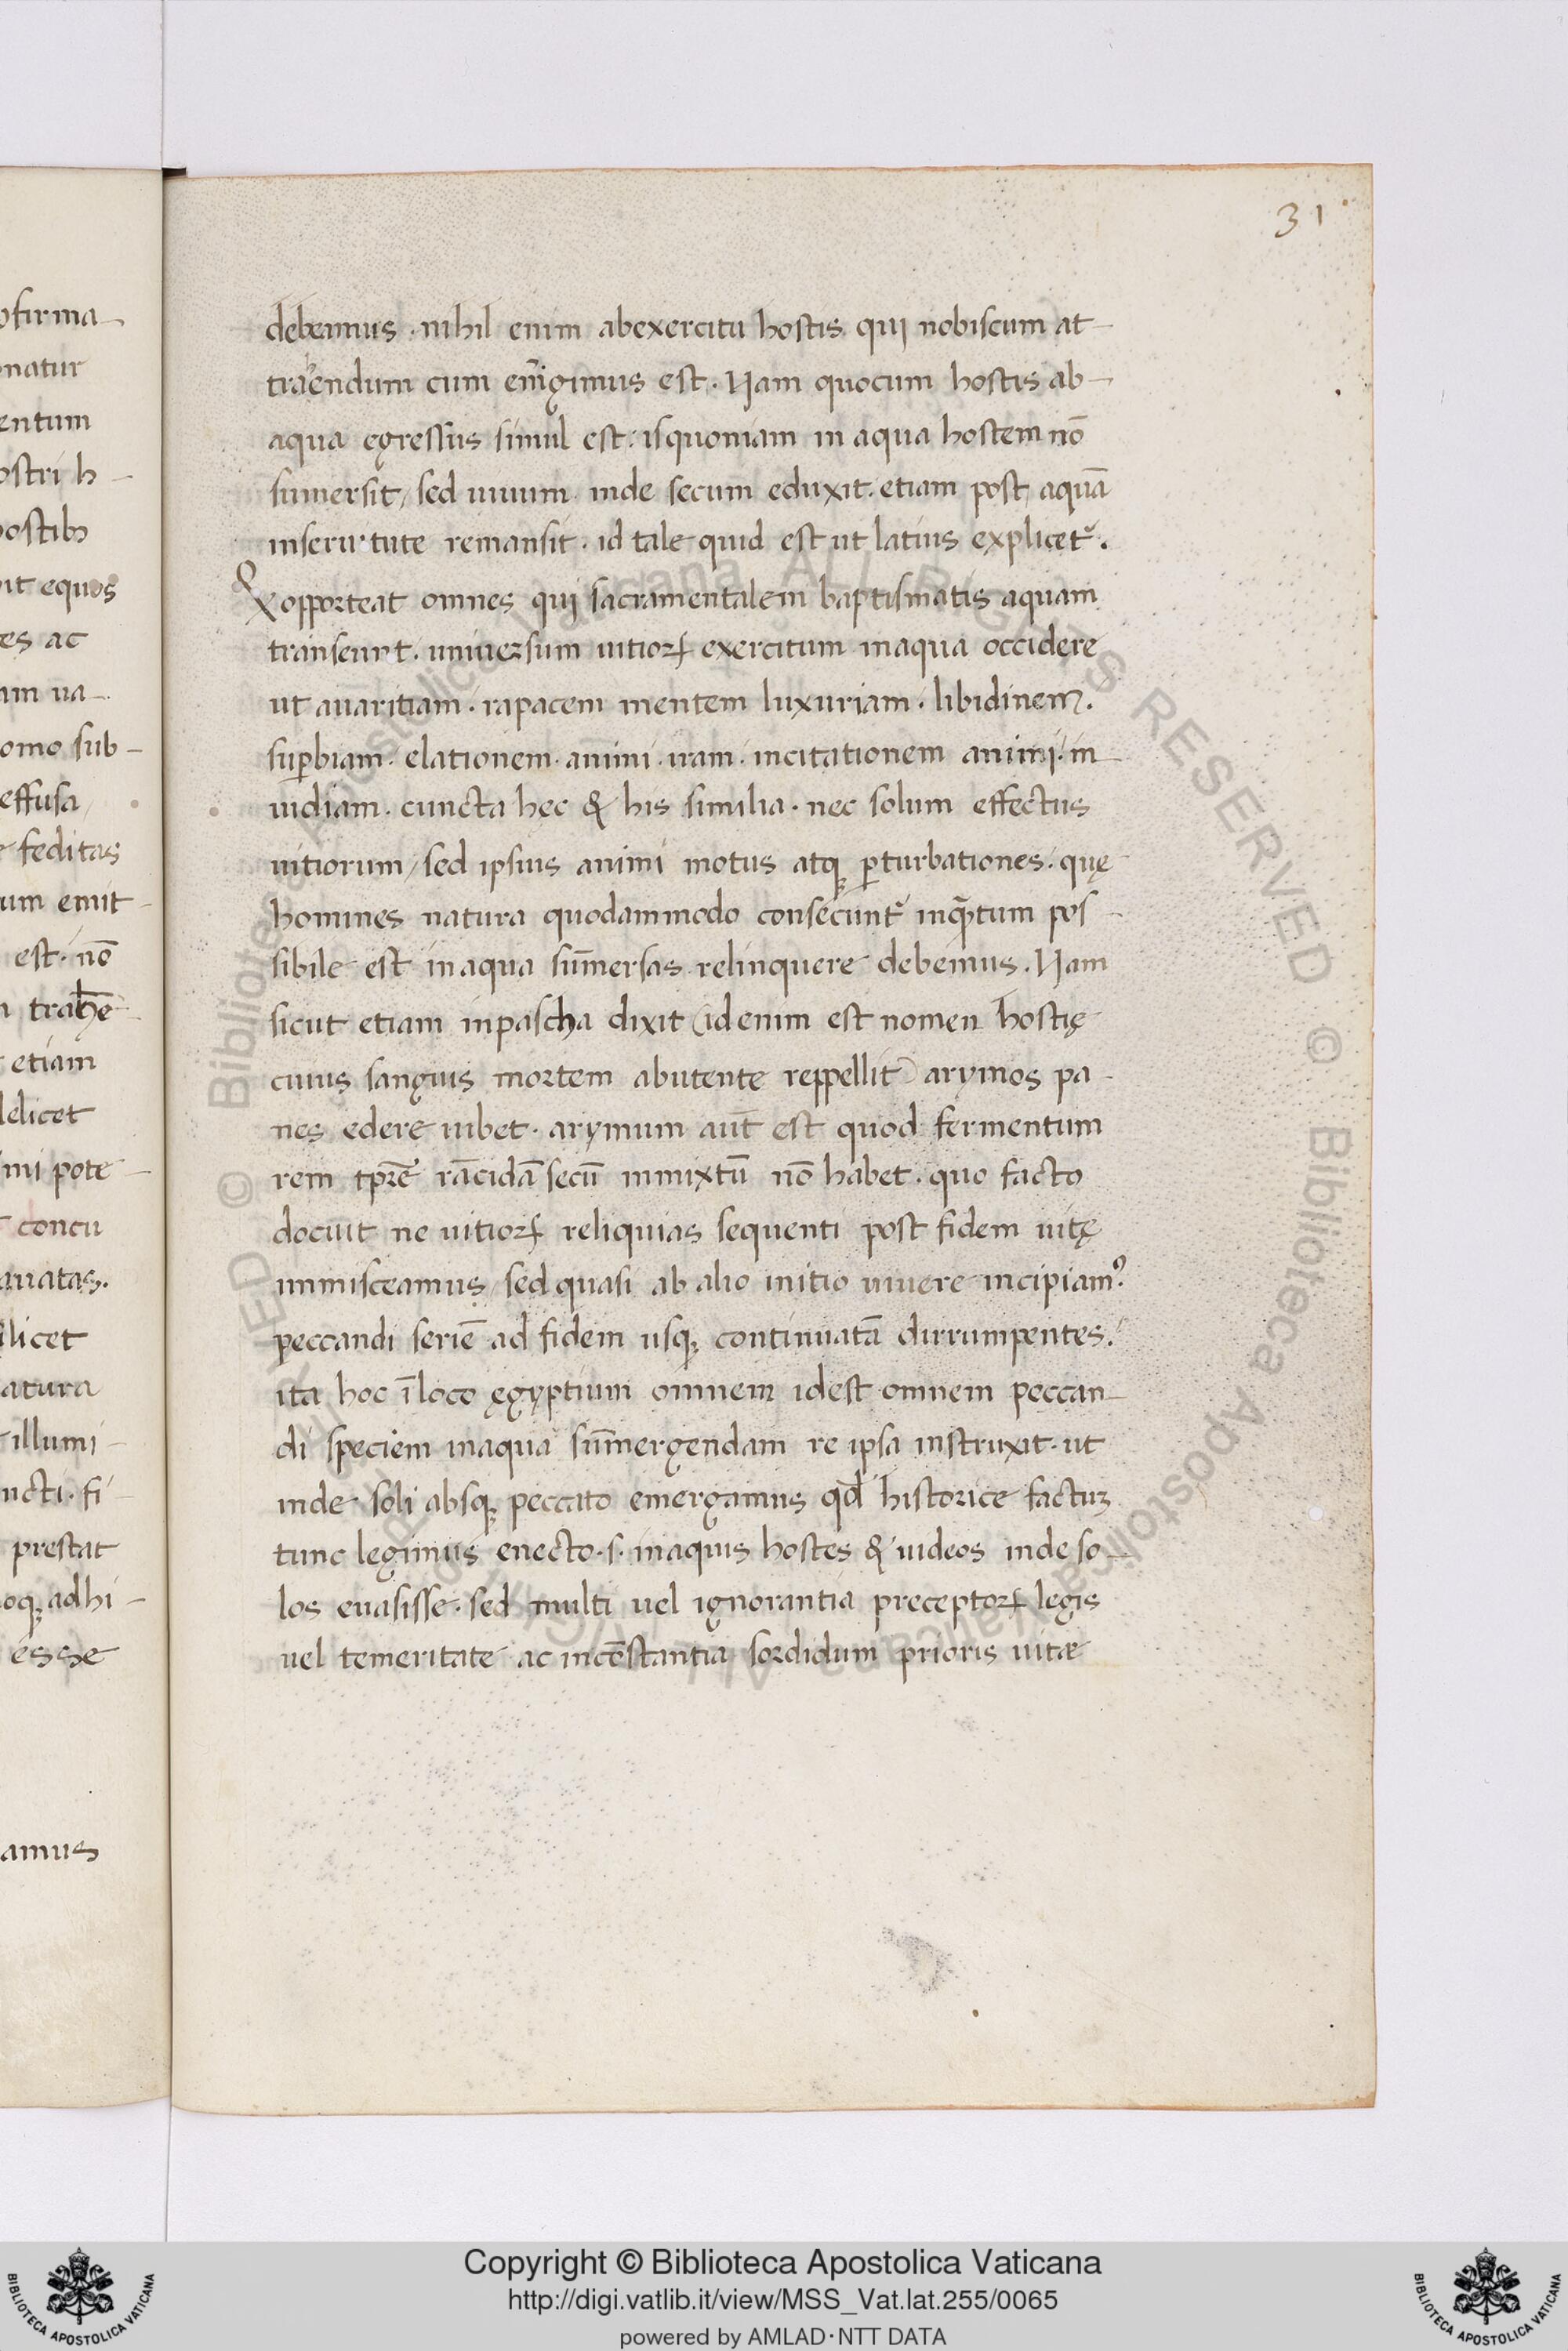 31
debemus · nihil enim abexercitu hostis qui nobiscum at-
traendum cum em̃igimus est · Nam quocum hostis ab-
aqua egressus simul est · isquoniam in aqua hostem nō
sumersit, sed uiuum inde secum eduxit · etiam post aquā
inseruitute remansit · id tale quid est ut latius explicet᷑.
& opporteat omnes qui sacramentalem baptismatis aquam
transeunt · uniuersum uitioꝝ exercitum inaqua occidere
ut auaritiam · rapacem mentem luxuriam · libidinem.
suꝑbiam · elationem · animi · iram · incitationem animi · in-
uidiam · cuncta hęc & his similia · nec solum effectus
uitiorum, sed ipsius animi motus atqꝫ ꝑturbationes · quę
homines natura quodammodo consecunt᷑ inqᷓtum pos-
sibile est inaqua sum̃ersas relinquere debemus. Nam
sicut etiam inpascha dixit (id enim est nomen hostię
cuius sanguis mortem abutente reppellit) azymos pa-
nes edere iubet · azymum aut̃ est quod fermentum
rem tpr̃ē rācidā secū inmixtū nō habet · quo facto
docuit ne uitioꝝ reliquias sequenti post fidem uitę
immisceamus, sed quasi ab alio initio uiuere incipiamꝰ.
peccandi seriē ad fidem usqꝫ continuatā dirrumpentes.
ita hoc ī loco ęgyptium omnem idest omnem peccan-
di speciem inaqua sum̃ergendam re ipsa instruxit · ut
inde soli absqꝫ peccato emergamus qđ historice factuꝫ
tunc legimus enecto · s · inaquis hostes & iudeos inde so-
los euasisse · sed multi uel ignorantia preceptoꝝ legis
uel temeritate ac incōstantia sordidum prioris uitæ
ofirma-
natur
entum
ostri h-
ostibꝫ
it equos
es ac
am ua-
omo sub-
effusa
feditas
um emit-
est · nō
etiam
delicet
mi pote-
concu
auatas.
licet
atura
illumi-
ncti · fi-
prestat
oqꝫ adhi-
esse
amus
© Biblioteca Apostolica Vaticana ALL RIGHTS RESERVED © Biblioteca Apostolica Vaticana ALL RIGHTS RESERVED
BIBLIOTECA APOSTOLICA VATICANA
Copyright © Biblioteca Apostolica Vaticana
http://digi.vatlib.it/view/MSS_Vat.lat.255/0065
powered by AMLAD·NTT DATA
BIBLIOTECA APOSTOLICA VATICANA